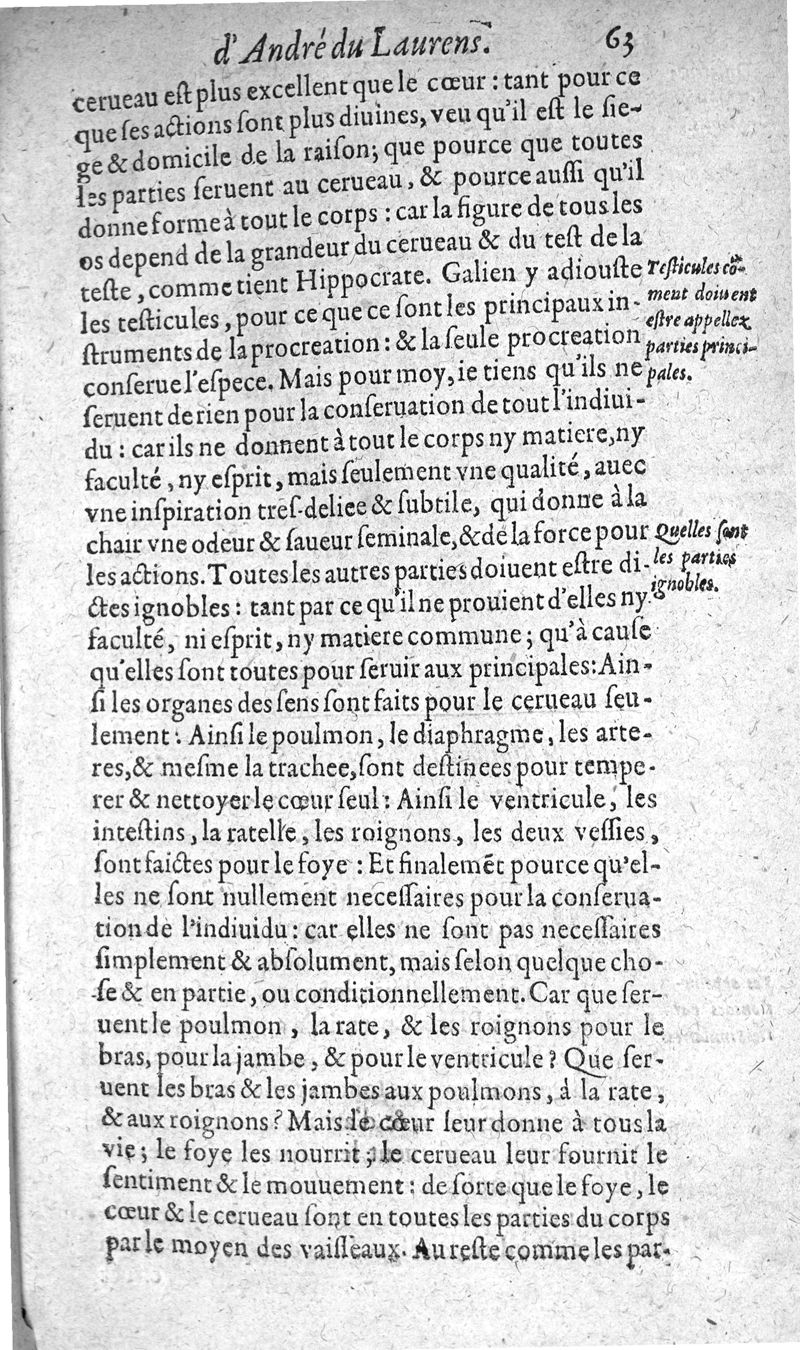 d'André du Laurens. 63
cerueau est plus excellent que le cœur : tant pour ce
que ſes actions ſont plus diuines, veu qu'il est le ſie-
ge & domicile de la raiſon; que pource que toutes
les parties ſeruent au cerueau, & pource auſſi qu'il
donne forme à tout le corps : car la figure de tous les
os depend de la grandeur du cerueau & du test de la
teste, comme tient Hippocrate. Galien y adiouste
les testicules, pour ce que ce ſont les principaux in-
struments de la procreation : & la ſeule procreation
conſerue l'eſpece. Mais pour moy, ie tiens qu'ils ne
ſeruent de rien pour la conſeruation de tout l'indiui-
du : car ils ne donnent à tout le corps ny matiere, ny
faculté, ny eſprit, mais ſeulement vne qualité, auec
vne inſpiration treſ-deliee & ſubtile, qui donne à la
chair vne odeur & ſaueur ſeminale, & de la force pour
les actions. Toutes les autres parties doiuent estre di-
ctes ignobles : tant par ce qu'il ne prouient d'elles ny
faculté, ni eſprit, ny matiere commune ; qu'à cauſe
qu'elles ſont toutes pour ſeruir aux principales: Ain-
ſi les organes des ſens ſont faits pour le cerueau ſeu-
lement : Ainſi le poulmon, le diaphragme, les arte-
res, & meſme la trachee, ſont destinees pour tempe-
rer & nettoyer le cœur ſeul : Ainſi le ventricule, les
intestins, la ratelle, les roignons, les deux veſſies,
ſont faictes pour le foye : Et finalemēt pource qu'el-
les ne ſont nullement neceſſaires pour la conſerua-
tion de l'indiuidu : car elles ne ſont pas neceſſaires
ſimplement & abſolument, mais ſelon quelque cho-
ſe & en partie, ou conditionnellement. Car que ſer-
uent le poulmon, la rate, & les roignons pour le
bras, pour la jambe, & pour le ventricule ? Que ſer-
uent les bras & les jambes aux poulmons, à la rate,
& aux roignons ? Mais le cœur leur donne à tous la
vie; le foye les nourrit ; le cerueau leur fournit le
ſentiment & le mouuement : de ſorte que le foye, le
cœur & le cerueau ſont en toutes les parties du corps
par le moyen des vaiſſeaux. Au reste comme les par-
Testicules cō-
ment doiuent
estre appellez
parties princi-
pales.
Quelles ſont
les parties
ignobles.